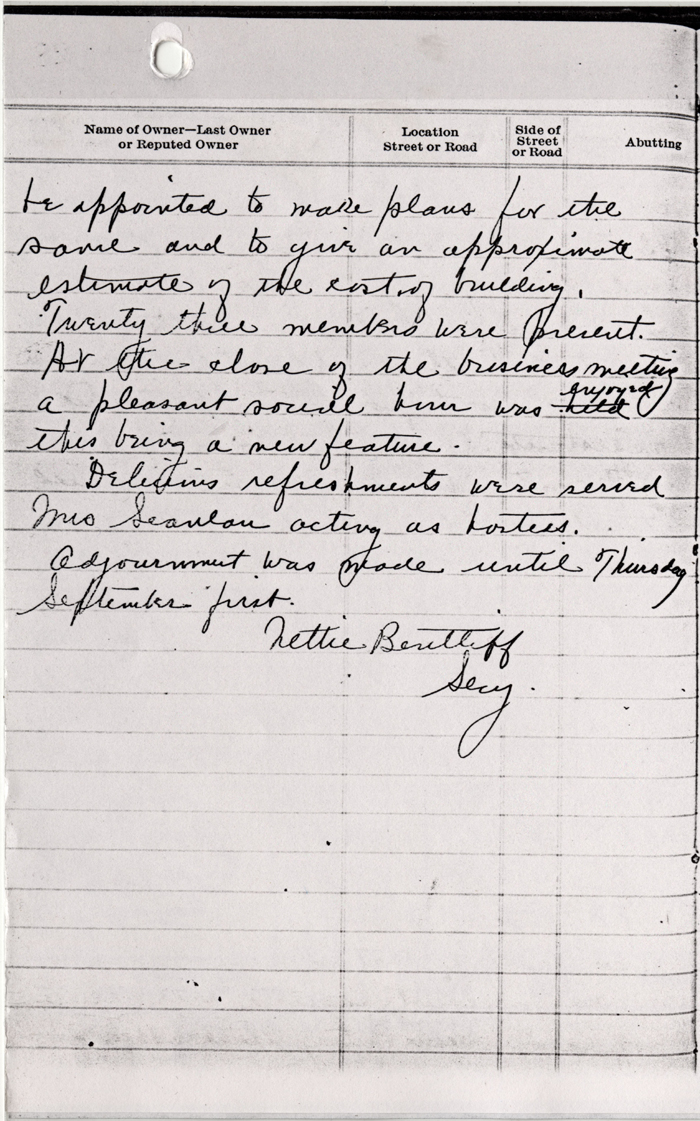 Name of Owner—Last Owner
or Reputed Owner
Location
Street or Road
Side of
Street
or Road
Abutting
be appointed to make plans for the
same and to give an approximate
estimate of the cost of building.
Twenty three members were present.
At the close of the business meeting
a pleasant social hour was held enjoyed
this being a new feature.
Delicious refreshments were served
Mrs Scanlan acting as hostess.
Adjournment was made until Thursday
September first.
Nettie Bentliff
Secy.